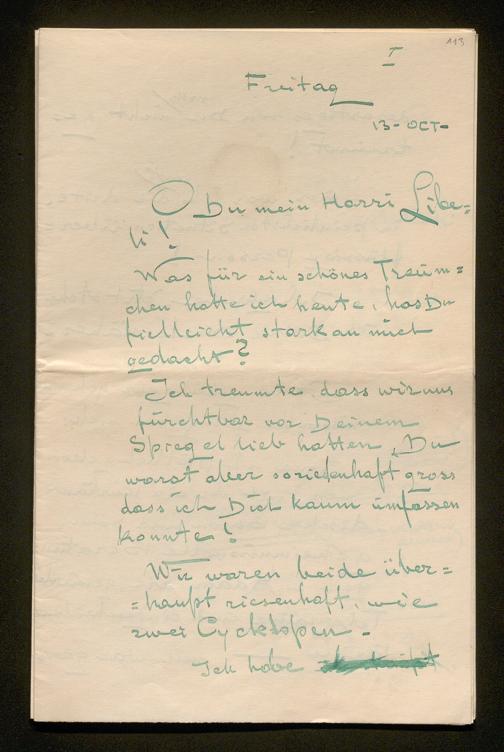 113
I
Freitag
13-OCT-
O Du mein Harri Libe=
li!
Was für ein schönes Treum=
chen hatte ich heute, hasDu
fielleicht stark an mich
gedacht?
Ich treumte dass wir uns
fürchtbar vor Deinem
Spregel lieb hatten, Du
warst aber so riesenhaft gross
dass ich Dich kaum umfassen
konnte!
Wir waren beide über=
=haupt riesenhaft, wie
zwei Cycklopen -
Ich habe